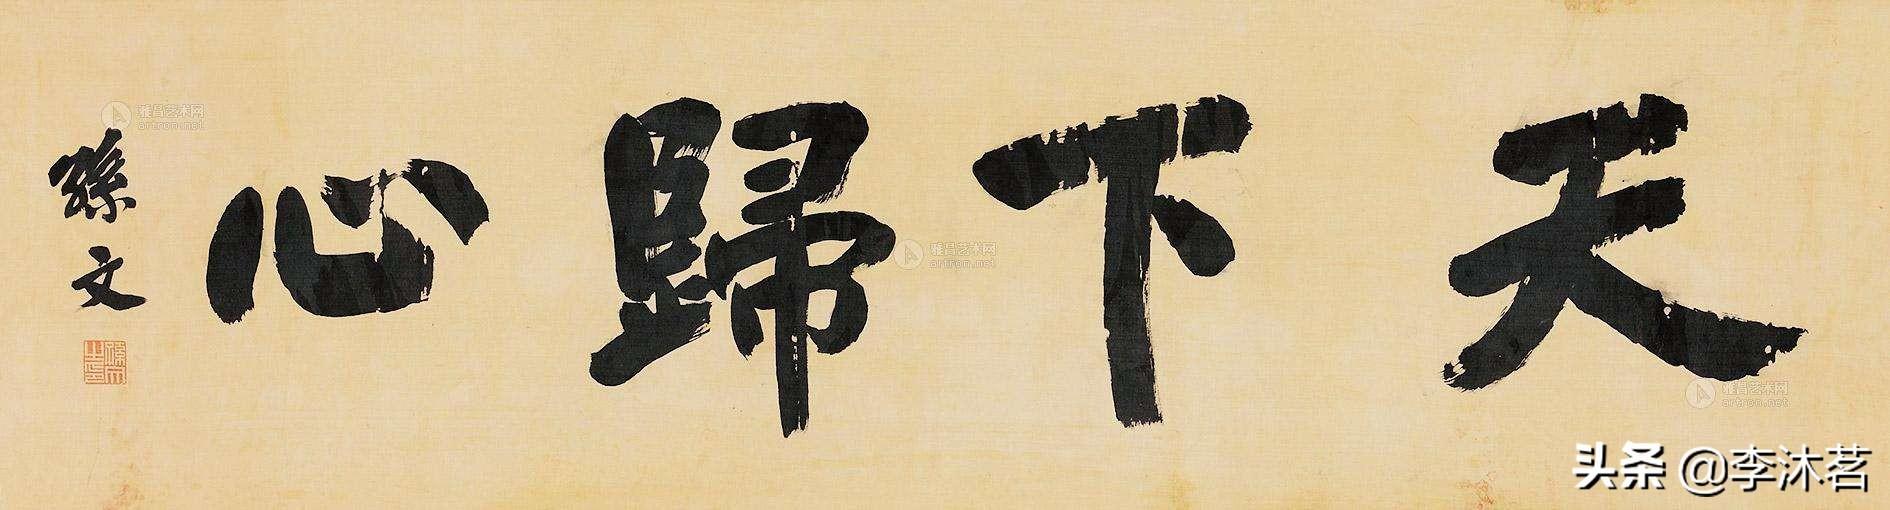 天下歸心
孫文
孫文之印
雅昌艺术网
artron.net
雅昌艺术网
artron.net
雅昌艺术网
artron.net
头条 @李沐茗